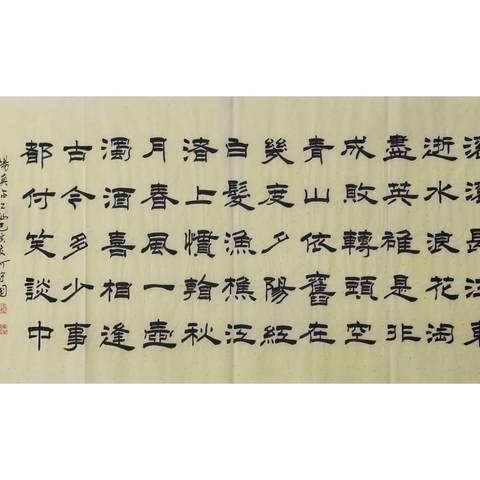 滚滚長江東
逝水浪花淘
盡英雄是非
成敗轉頭空
青山依舊在
幾度夕陽紅
白髮漁樵江
渚上慣看秋
月春風一壺
濁酒喜相逢
古今多少事
都付笑談中